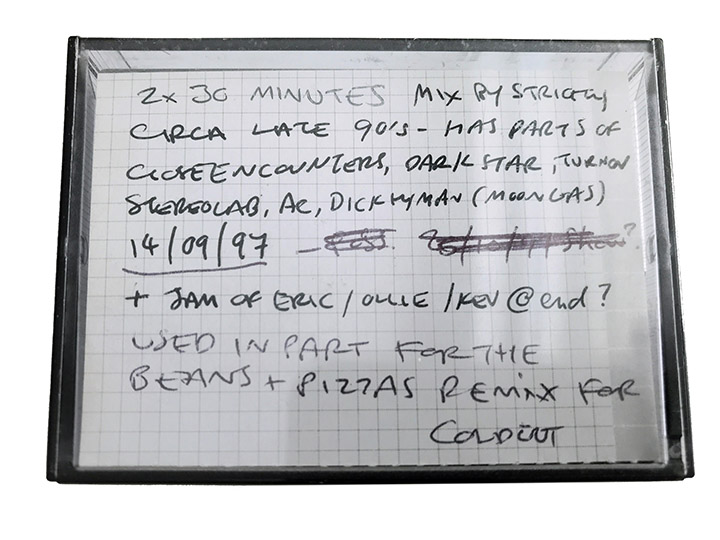 2x 30 MINUTES MIX BY STRICTLY
CIRCA LATE 90'S - HAS PARTS OF
CLOSE ENCOUNTERS, DARK STAR, TURNON
STEREOLAB, AR, DICK HYMAN (MOON GAS)
14/09/97 -
+ JAM OF ERIC / OLLIE / KEV @ end?
USED IN PART FOR THE
BEANS + PIZZAS REMIX FOR
COLDCUT